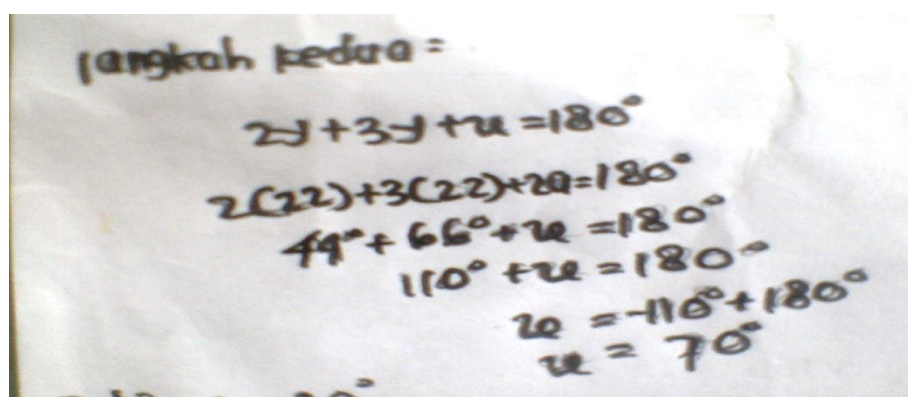 langkah kedua =
2y+3y+x=180°
2(22)+3(22)+x=180°
44°+66°+x=180°
110°+x=180°
x=-110°+180°
x=70°